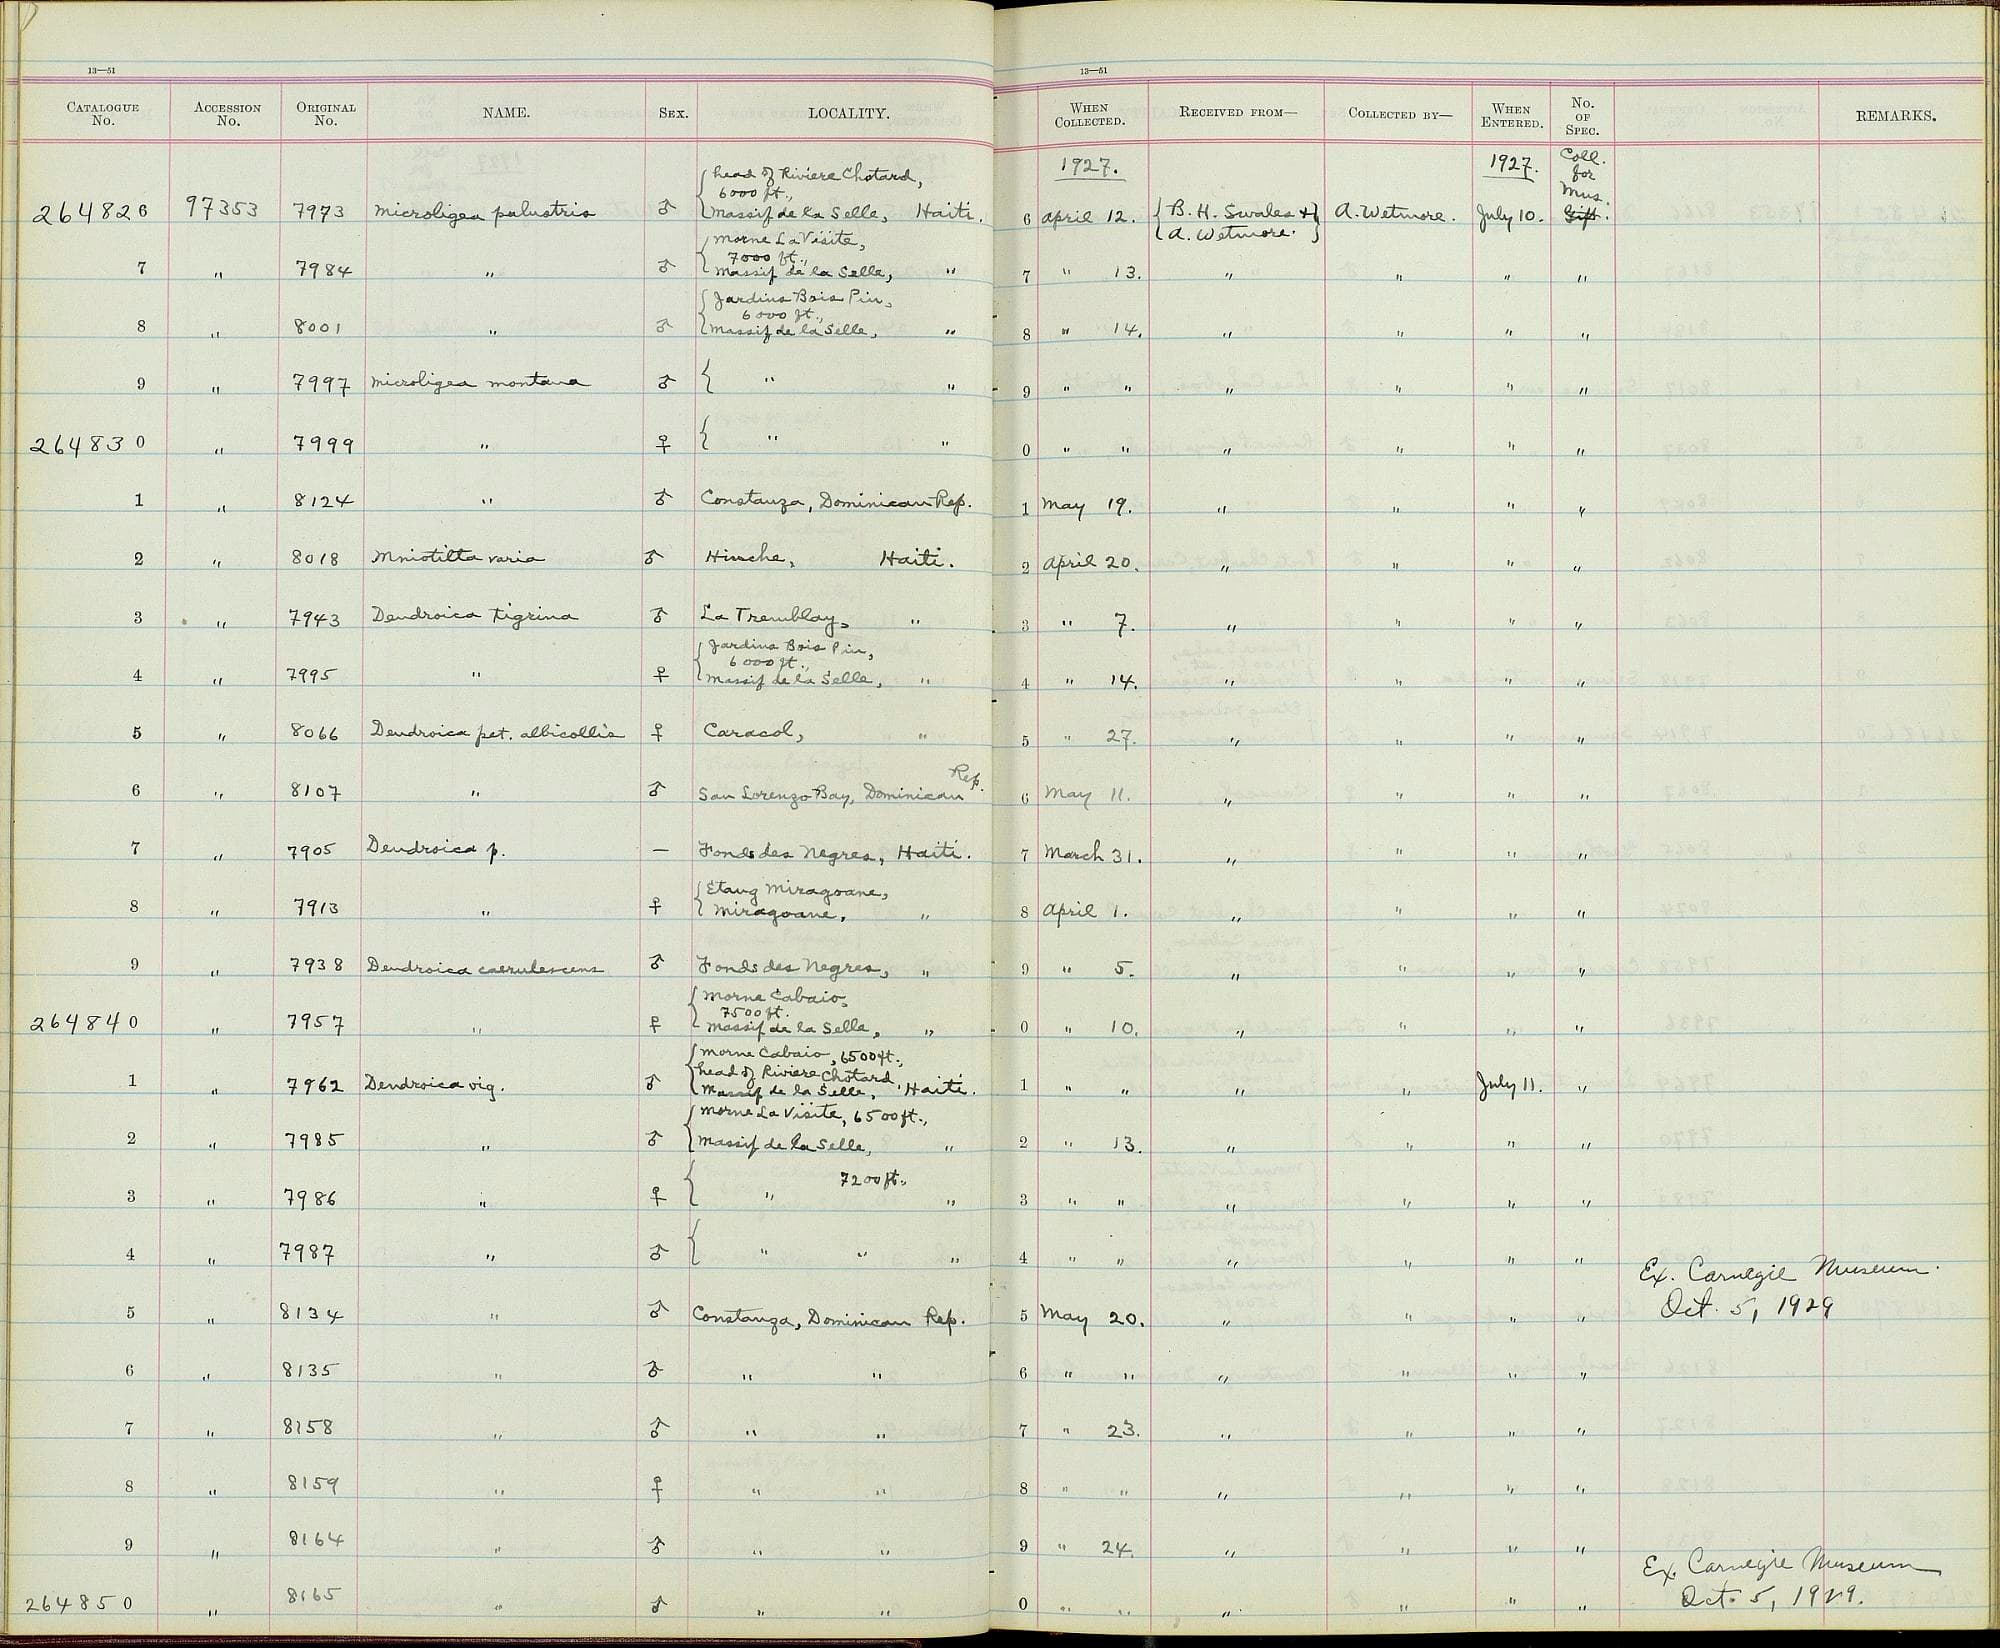 13—51
Catalogue No. Accession No. Original No. NAME. Sex. LOCALITY.
264826 97353 7973 Microligea palustris ♂ { head of Riviere Chotard, 6000 ft., Massif de la Selle, Haiti.
7 〃 7984 〃 ♂ { Morne La Visite, 7000 ft., Massif de la Selle, 〃
8 〃 8001 〃 ♂ { Jardins Bois Pin, 6000 ft., Massif de la Selle, 〃
9 〃 7997 Microligea montana ♂ { 〃 〃
264830 〃 7999 〃 ♀ { 〃 〃
1 〃 8124 〃 ♂ Constanza, Dominican Rep.
2 〃 8018 Mniotilta varia ♂ Hinche, Haiti.
3 〃 7943 Dendroica tigrina ♂ La Tremblay, 〃
4 〃 7995 〃 ♀ { Jardins Bois Pin, 6000 ft., Massif de la Selle, 〃
5 〃 8066 Dendroica pet. albicollis ♀ Caracol, 〃
6 〃 8107 〃 ♂ San Lorenzo Bay, Dominican Rep.
7 〃 7905 Dendroica p. — Fonds des Negres, Haiti.
8 〃 7913 〃 ♀ { Etang Miragoane, Miragoane, 〃
9 〃 7938 Dendroica caerulescens ♂ Fonds des Negres, 〃
264840 〃 7957 〃 ♀ { Morne Cabaio, 7500 ft. Massif de la Selle, 〃
1 〃 7962 Dendroica vig. ♂ { Morne Cabaio, 6500 ft., head of Riviere Chotard, Massif de la Selle, Haiti.
2 〃 7985 〃 ♂ { Morne La Visite, 6500 ft., Massif de la Selle, 〃
3 〃 7986 〃 ♀ { 〃 7200 ft., 〃
4 〃 7987 〃 ♂ { 〃 〃 〃
5 〃 8134 〃 ♂ Constanza, Dominican Rep.
6 〃 8135 〃 ♂ 〃 〃
7 〃 8158 〃 ♂ 〃 〃
8 〃 8159 〃 ♀ 〃 〃
9 〃 8164 〃 ♂ 〃 〃
264850 〃 8165 〃 ♂ 〃 〃
13—51
When Collected. Received from— Collected by— When Entered. No. of Spec. REMARKS.
1927. 1927. Coll. for Mus.
6 April 12. { B. H. Swales + A. Wetmore. } A. Wetmore. July 10. Gift.
7 〃 13. 〃 〃 〃 〃
8 〃 14. 〃 〃 〃 〃
9 〃 〃 〃 〃 〃 〃
0 〃 〃 〃 〃 〃 〃
1 May 19. 〃 〃 〃 〃
2 April 20. 〃 〃 〃 〃
3 〃 7. 〃 〃 〃 〃
4 〃 14. 〃 〃 〃 〃
5 〃 27. 〃 〃 〃 〃
6 May 11. 〃 〃 〃 〃
7 March 31. 〃 〃 〃 〃
8 April 1. 〃 〃 〃 〃
9 〃 5. 〃 〃 〃 〃
0 〃 10. 〃 〃 〃 〃
1 〃 〃 〃 〃 July 11. 〃
2 〃 13. 〃 〃 〃 〃
3 〃 〃 〃 〃 〃 〃
4 〃 〃 〃 〃 〃 〃 Ex. Carnegie Museum.
5 May 20. 〃 〃 〃 〃 Oct. 5, 1929
6 〃 〃 〃 〃 〃 〃
7 〃 23. 〃 〃 〃 〃
8 〃 〃 〃 〃 〃 〃
9 〃 24. 〃 〃 〃 〃 Ex. Carnegie Museum
0 〃 〃 〃 〃 〃 〃 Oct. 5, 1929.